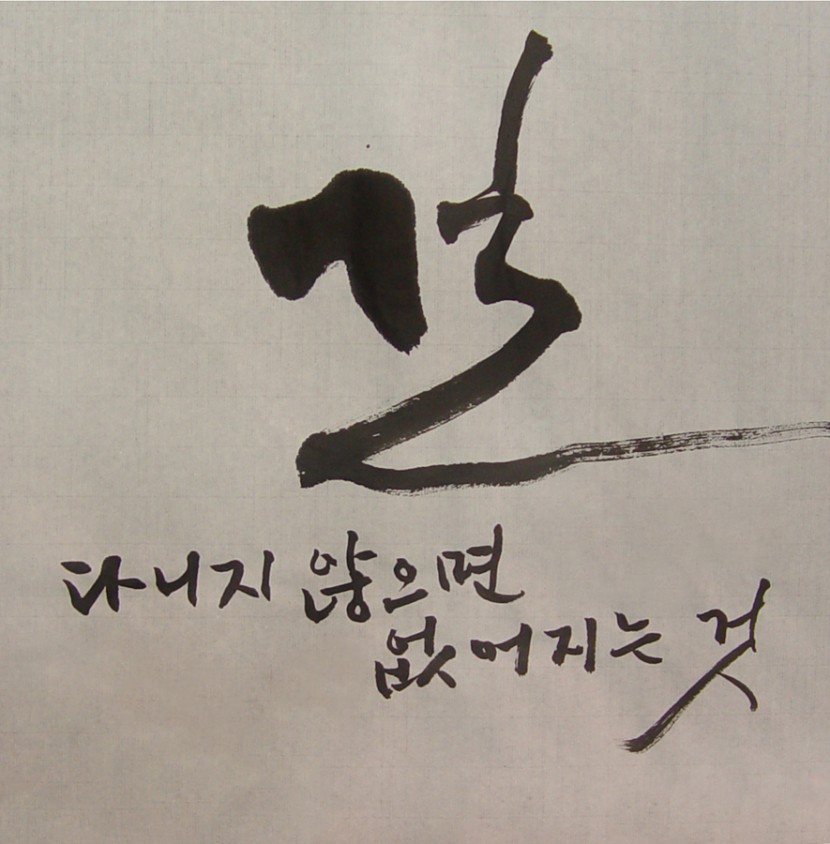 길
다니지 않으면
없어지는 것